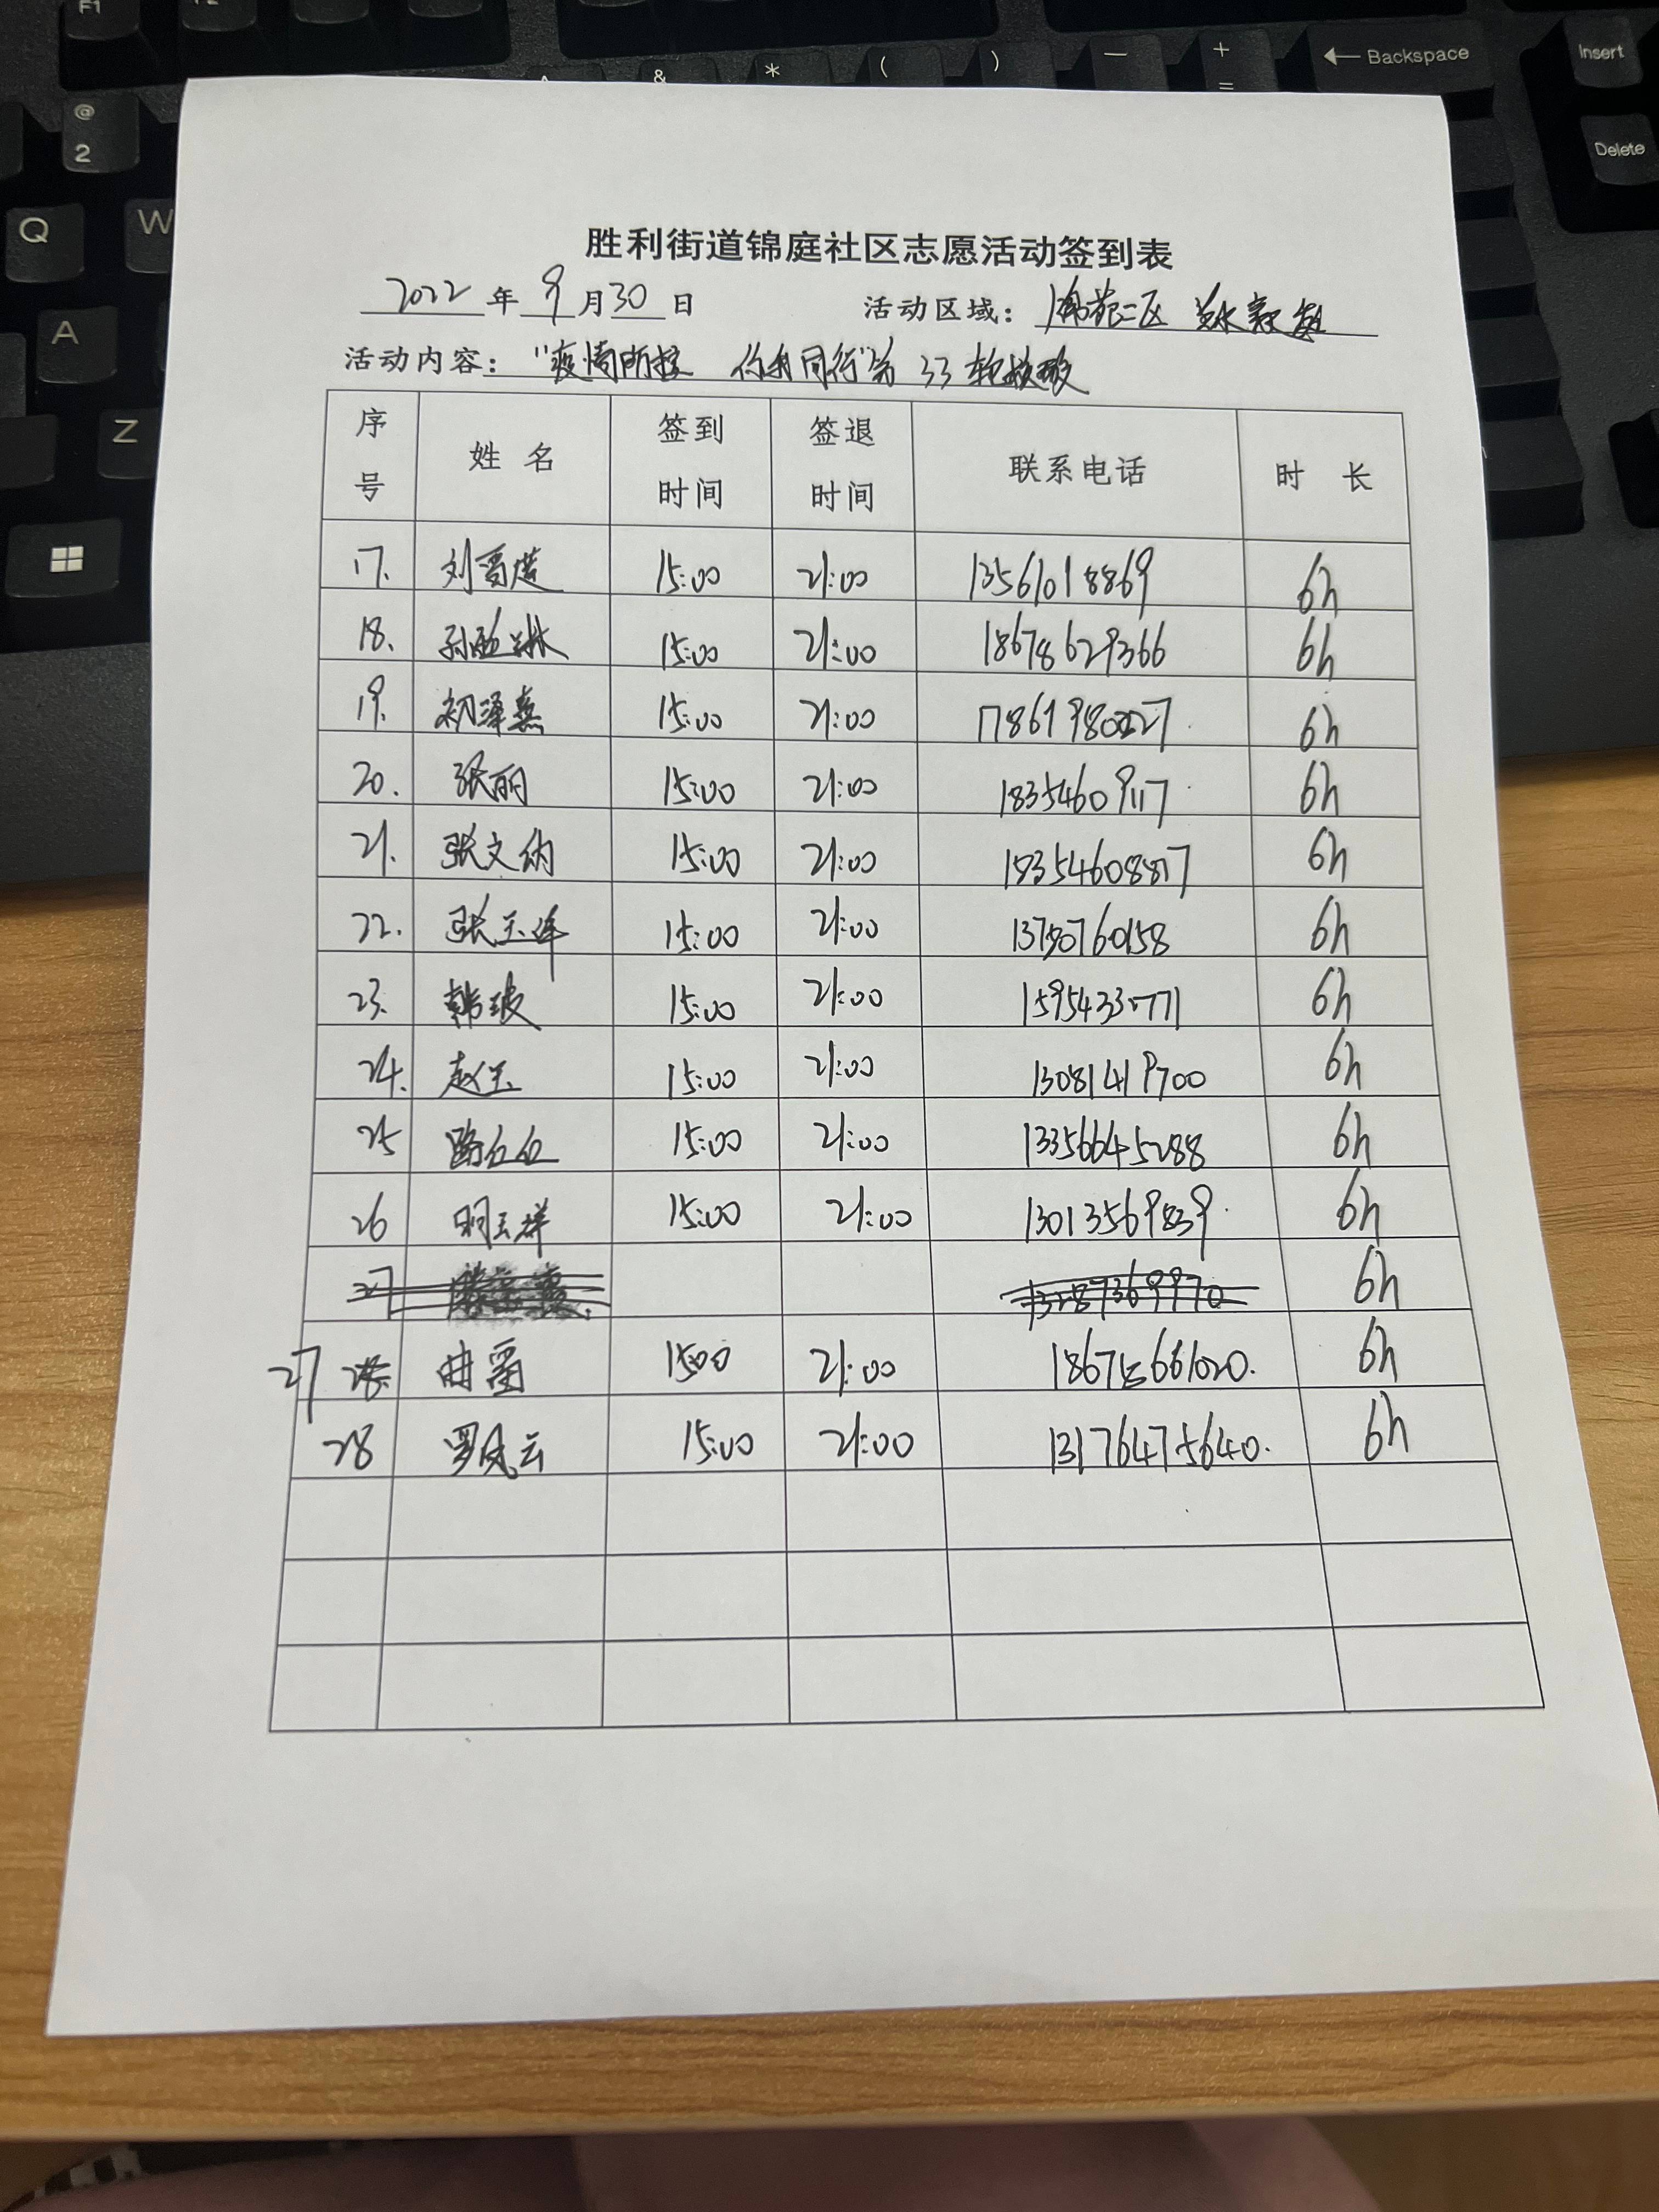 F1
&
*
(
)
—
+
=
← Backspace
Insert
@
2
Delete
Q
W
A
Z
胜利街道锦庭社区志愿活动签到表
2022 年 9 月 30 日 活动区域: 二区
活动内容: "疫情防控 你我同行"第 33 轮核酸
序号 姓 名 签到时间 签退时间 联系电话 时 长
17. 刘晋 15:00 21:00 13561018869 6h
18. 孙 15:00 21:00 18678629366 6h
19. 初泽熹 15:00 21:00 6h
20. 张丽 15:00 21:00 18354609117 6h
21. 张文 15:00 21:00 6h
22. 张玉 15:00 21:00 6h
23. 韩玻 15:00 21:00 6h
24. 赵玉 15:00 21:00 13081419700 6h
25 路 15:00 21:00 13356645288 6h
26 明玉群 15:00 21:00 13013569839 6h
27 13287369970 6h
27 曲 15:00 21:00 6h
28 罗凤云 15:00 21:00 13176475640. 6h